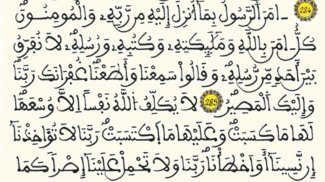 284 ءَامَنَ اَلرَّسُولُ بِمَآ أُنزِلَ إِلَيْهِ مِن رَّبِّهِۦ وَالْمُومِنُونَ
كُلٌّ ـ اٰمَنَ بِاللَّهِ وَمَلَٰٓئِكَتِهِۦ وَكُتُبِهِۦ وَرُسُلِهِۦ لَا نُفَرِّقُ
بَيْنَ أَحَدٍ مِّن رُّسُلِهِۦ وَقَالُوا سَمِعْنَا وَأَطَعْنَا غُفْرَانَكَ رَبَّنَا
وَإِلَيْكَ الْمَصِيرُ 285 لَا يُكَلِّفُ اللَّهُ نَفْساً اِلَّا وُسْعَهَا
لَهَا مَا كَسَبَتْ وَعَلَيْهَا مَا اَكْتَسَبَتْ رَبَّنَا لَا تُؤَاخِذْنَآ
إِن نَّسِينَآ أَوَ اَخْطَأْنَا رَبَّنَا وَلَا تَحْمِلْ عَلَيْنَآ إِصْراً كَمَا